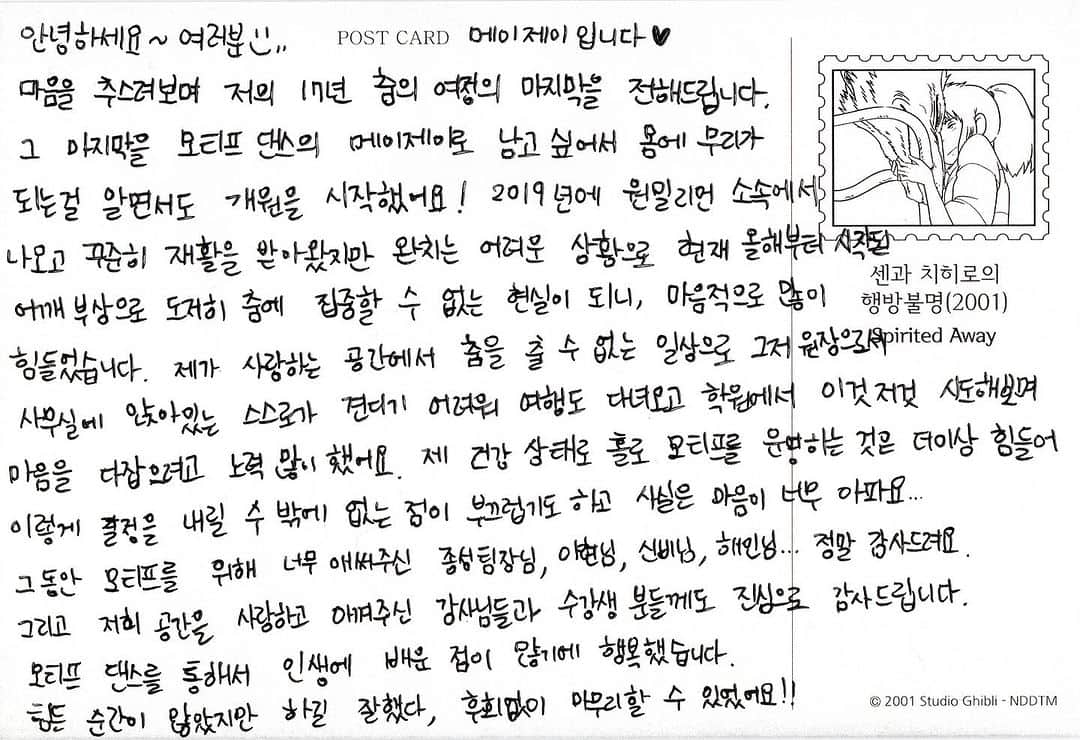 안녕하세요~ 여러분 POST CARD 메이제이 입니다♥
마음을 추스려보며 저의 17년 춤의 여정의 마지막을 전해드립니다.
그 마지막을 모티프 댄스의 메이제이로 남고 싶어서 몸에 무리가
되는걸 알면서도 개원을 시작했어요! 2019년에 원밀리언 소속에서
나오고 꾸준히 재활을 받아왔지만 완치는 어려운 상황으로 현재 올해부터 시작된
어깨 부상으로 도저히 춤에 집중할 수 없는 현실이 되니, 마음적으로 많이
힘들었습니다. 제가 사랑하는 공간에서 춤을 출 수 없는 일상으로 그저 원장으로서
사무실에 앉아있는 스스로가 견디기 어려워 여행도 다녀오고 학원에서 이것저것 시도해보며
마음을 다잡으려고 노력 많이 했어요. 제 건강 상태로 홀로 모티프를 운영하는 것은 더이상 힘들어
이렇게 결정을 내릴 수 밖에 없는 점이 부끄럽기도 하고 사실은 마음이 너무 아파요...
그동안 모티프를 위해 너무 애써주신 종성팀장님, 이현님, 신비님, 해인님... 정말 감사드려요.
그리고 저희 공간을 사랑하고 아껴주신 강사님들과 수강생 분들께도 진심으로 감사드립니다.
모티프 댄스를 통해서 인생에 배운 점이 많기에 행복했습니다.
힘든 순간이 많았지만 하길 잘했다, 후회없이 마무리할 수 있었어요!!
센과 치히로의
행방불명(2001)
Spirited Away
© 2001 Studio Ghibli - NDDTM